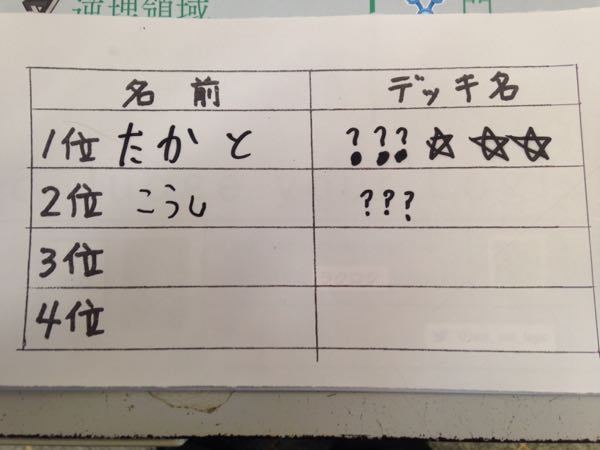 逆理領域
名前 デッキ名
1位 たかと ???☆☆☆
2位 こうし ???
3位
4位